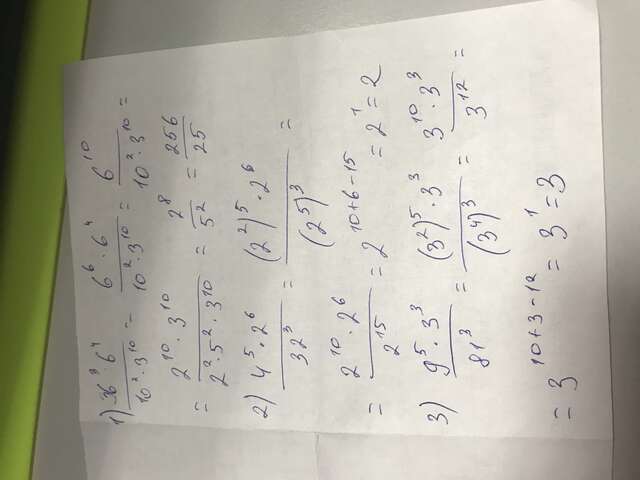 1) \frac{36^3 \cdot 6^4}{10^2 \cdot 3^{10}} = \frac{6^6 \cdot 6^4}{10^2 \cdot 3^{10}} = \frac{6^{10}}{10^2 \cdot 3^{10}} =
= \frac{2^{10} \cdot 3^{10}}{2^2 \cdot 5^2 \cdot 3^{10}} = \frac{2^8}{5^2} = \frac{256}{25}
2) \frac{4^5 \cdot 2^6}{32^3} = \frac{(2^2)^5 \cdot 2^6}{(2^5)^3} =
= \frac{2^{10} \cdot 2^6}{2^{15}} = 2^{10+6-15} = 2^1 = 2
3) \frac{9^5 \cdot 3^3}{81^3} = \frac{(3^2)^5 \cdot 3^3}{(3^4)^3} = \frac{3^{10} \cdot 3^3}{3^{12}} =
= 3^{10+3-12} = 3^1 = 3